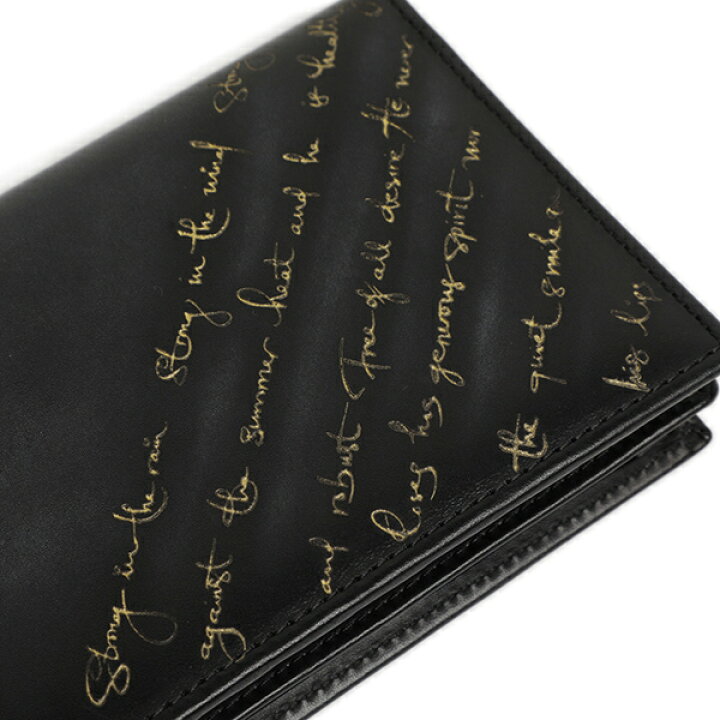 Strong in the rain Strong in the wind Strong
against the summer heat and he is healthy
and robust Free of all desire He never
loses his generous spirit nor
the quiet smile
his lips